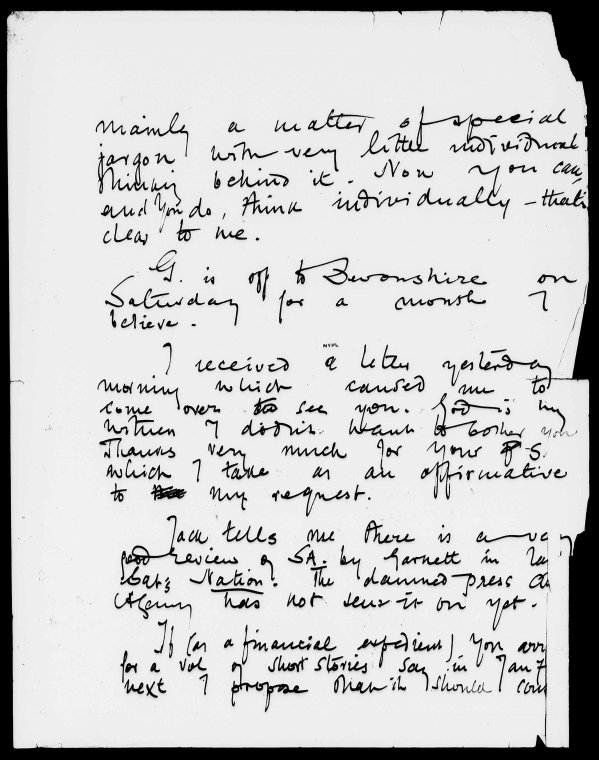 mainly a matter of special
jargon with very little individual
thinking behind it. Now you can,
and you do, think individually – that's
clear to me.
G. is off to Devonshire on
Saturday for a month I
believe.
NYPL
I received a letter yesterday
morning which caused me to
come over to see you. God is my
witness I didn't want to bother you
Thanks very much for your P.S.
which I take as an affirmative
to my request.
Jack tells me there is a very
good review of SA. by Garnett in
Sat's Nation. The damned press
Agency has not sent it on yet.
If (as a financial expedient) you
for a vol of short stories say in Jan
next I propose that it should